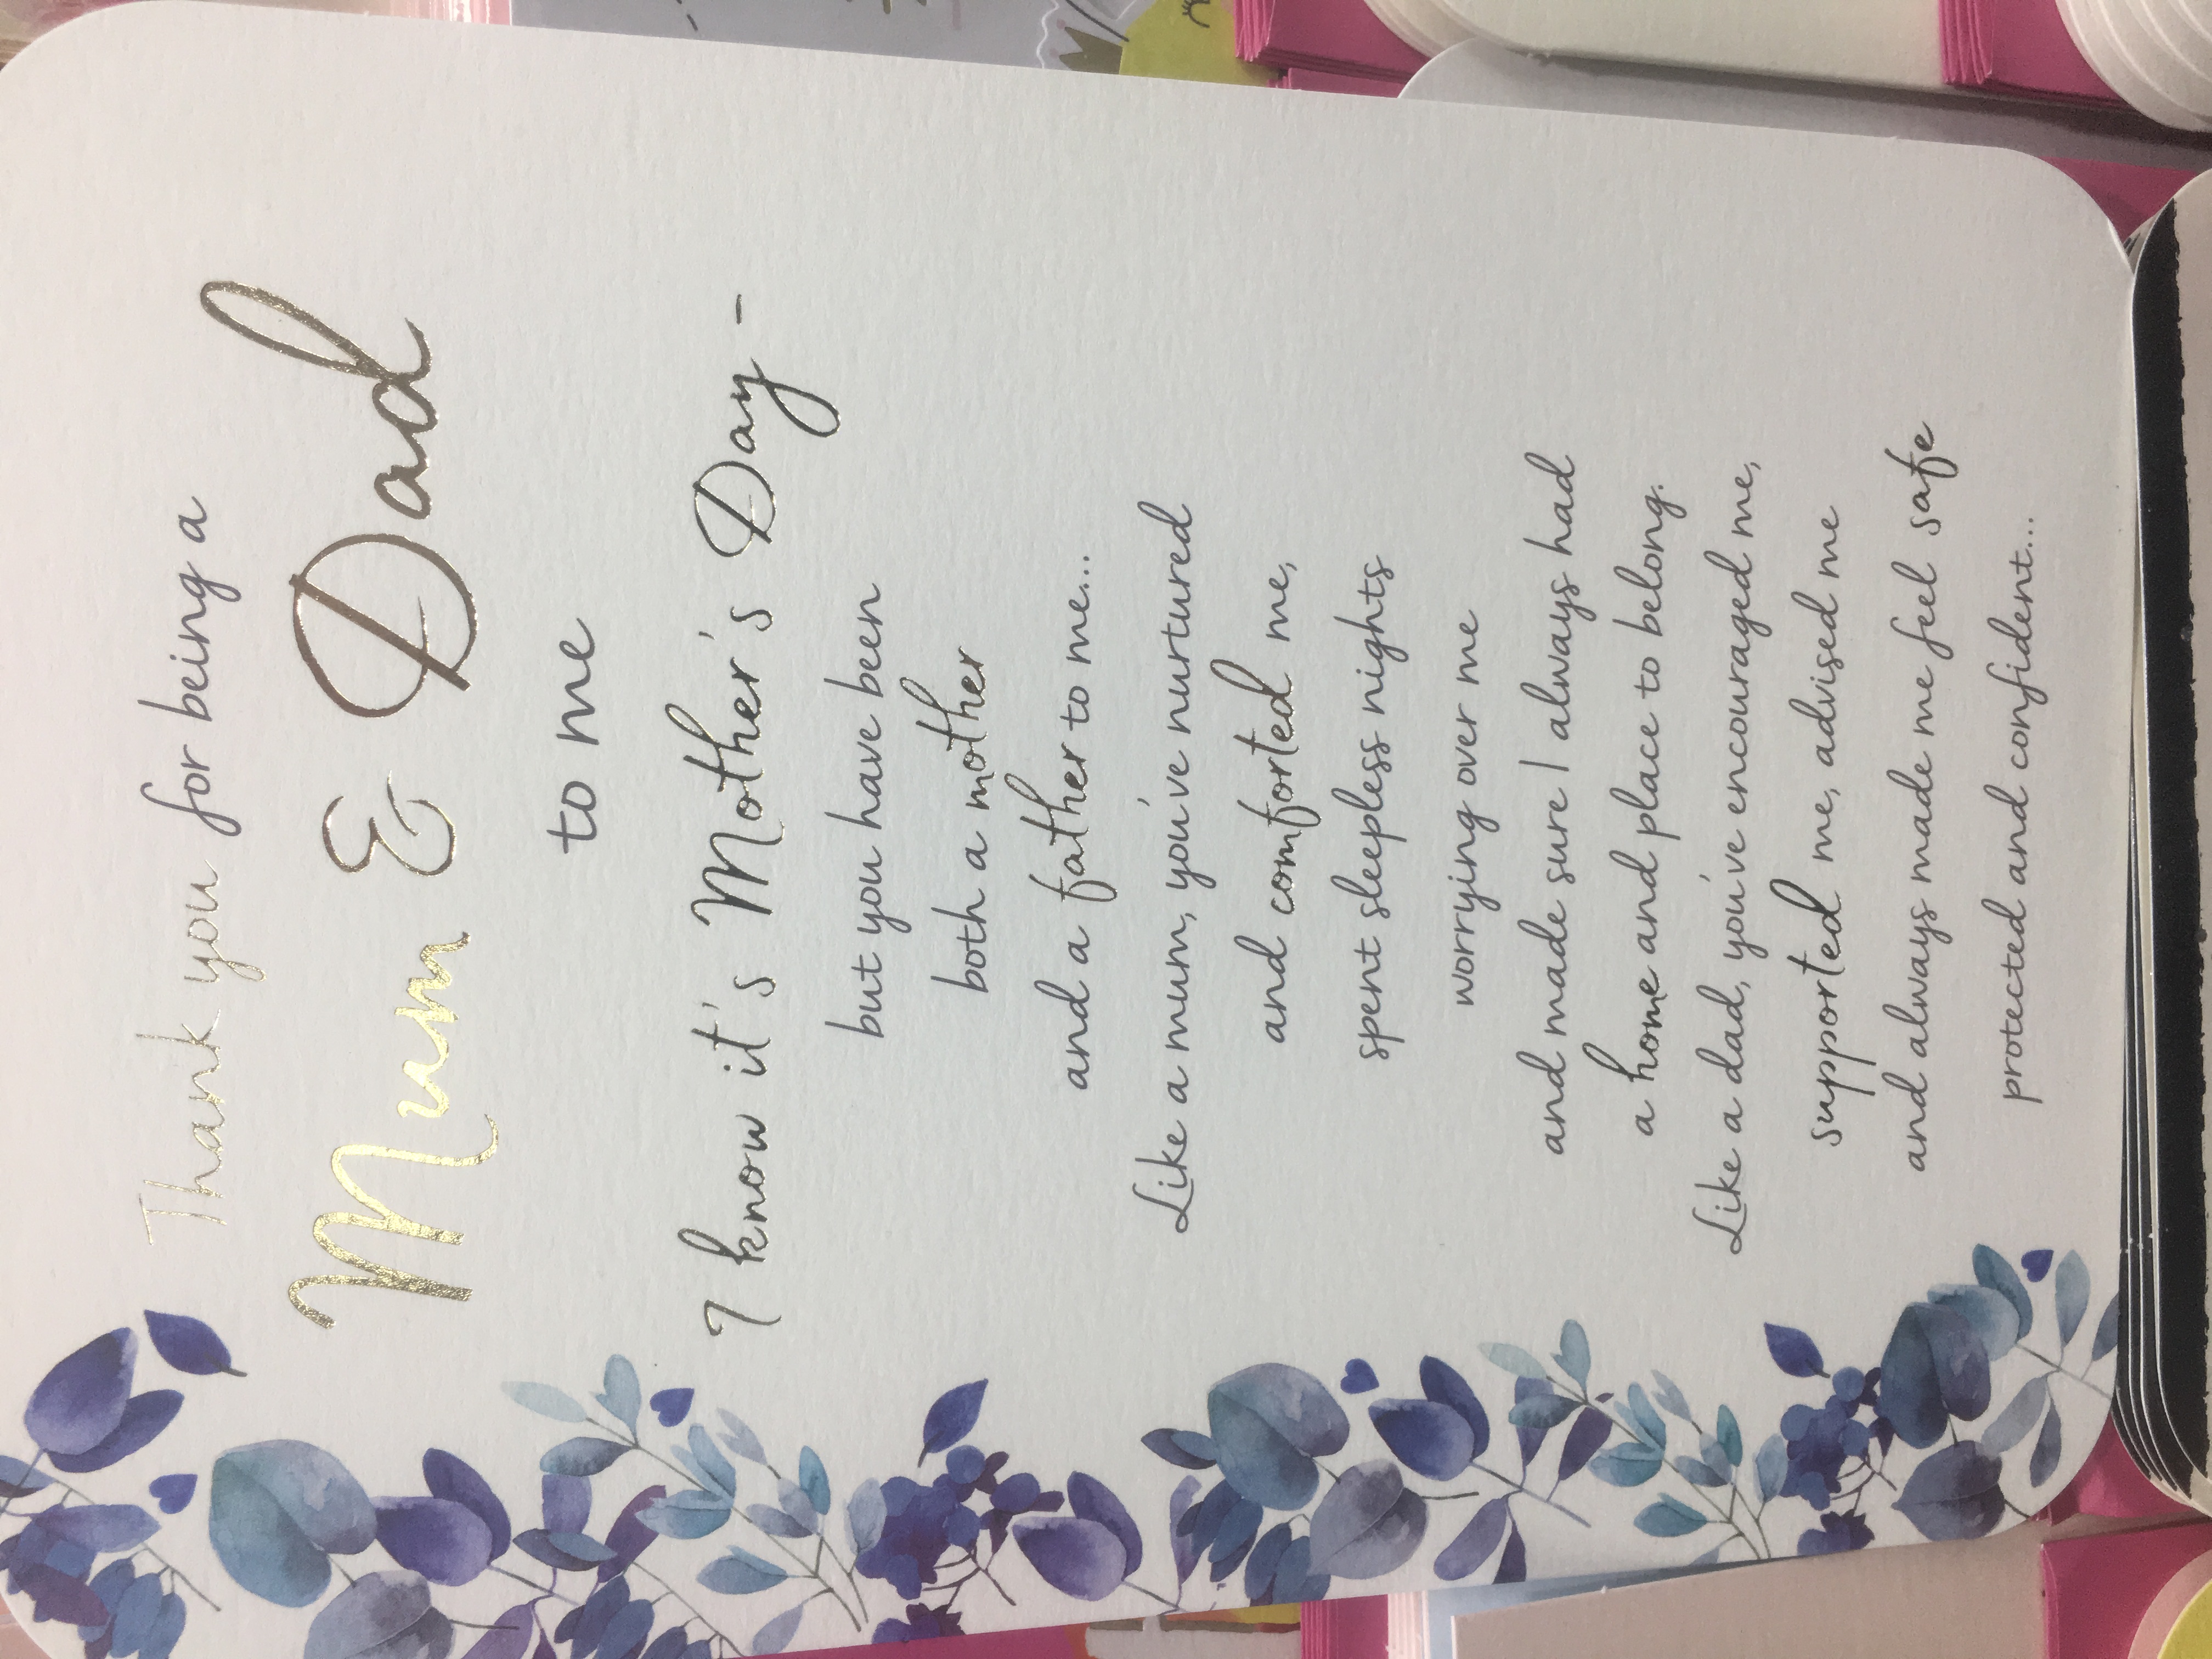 Thank you for being a
Mum & Dad
to me
I know it's Mother's Day -
but you have been
both a mother
and a father to me...
Like a mum, you've nurtured
and comforted me,
spent sleepless nights
worrying over me
and made sure I always had
a home and place to belong.
Like a dad, you've encouraged me,
supported me, advised me
and always made me feel safe
protected and confident...